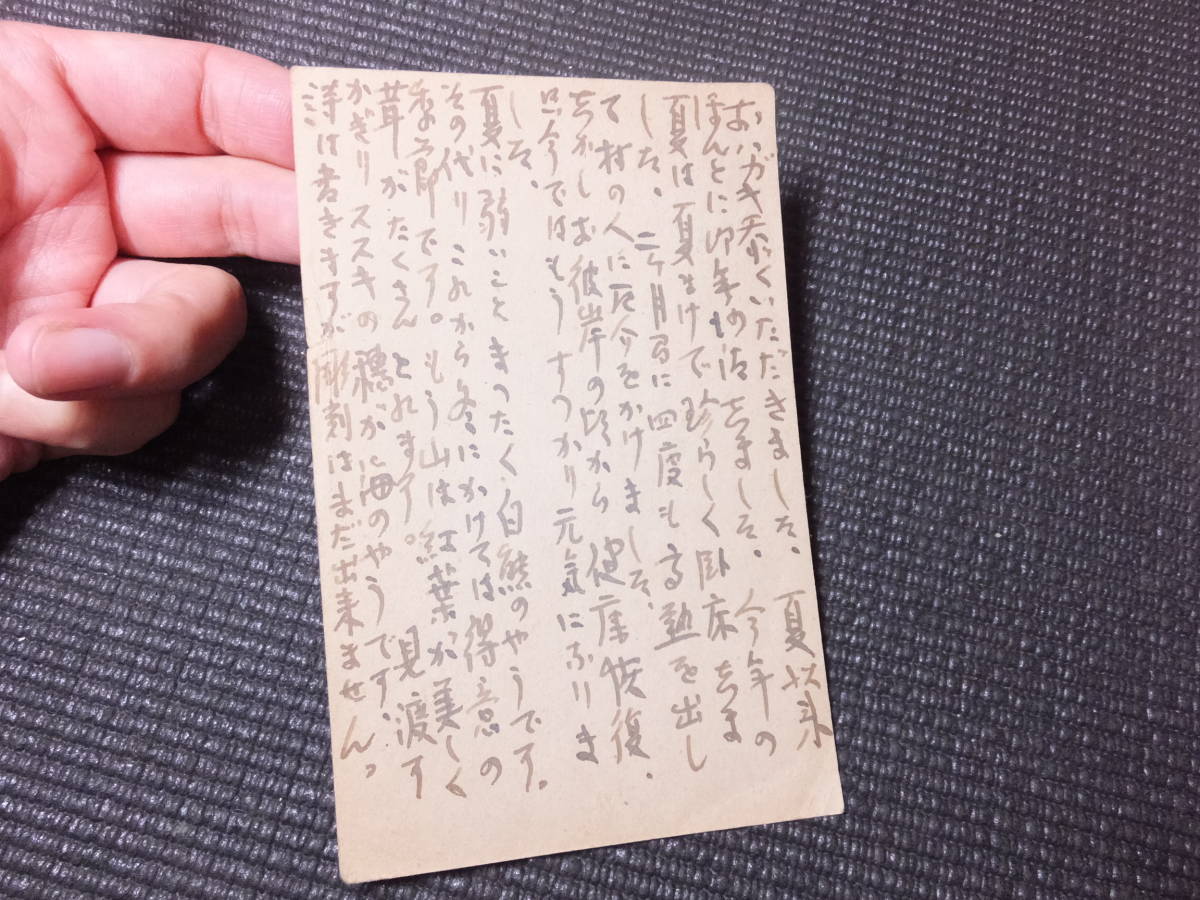 おハガキ忝くいただきました、夏以来
ほんとに御無沙汰しました、今年の
夏は夏まけで珍らしく臥床しま
した、二ケ月間に四度も高熱を出し
て村の人に厄介をかけました、
しかしお彼岸の頃から健康恢復、
只今ではもうすつかり元気になりま
した、
夏に弱いことまつたく白熊のやうです。
その代りこれから冬にかけては得意の
季節です。もう山は紅葉が美しく
茸がたくさんとれます。見渡す
かぎりススキの穂が海のやうです、
詩は書きますが彫刻はまだ出来ません。